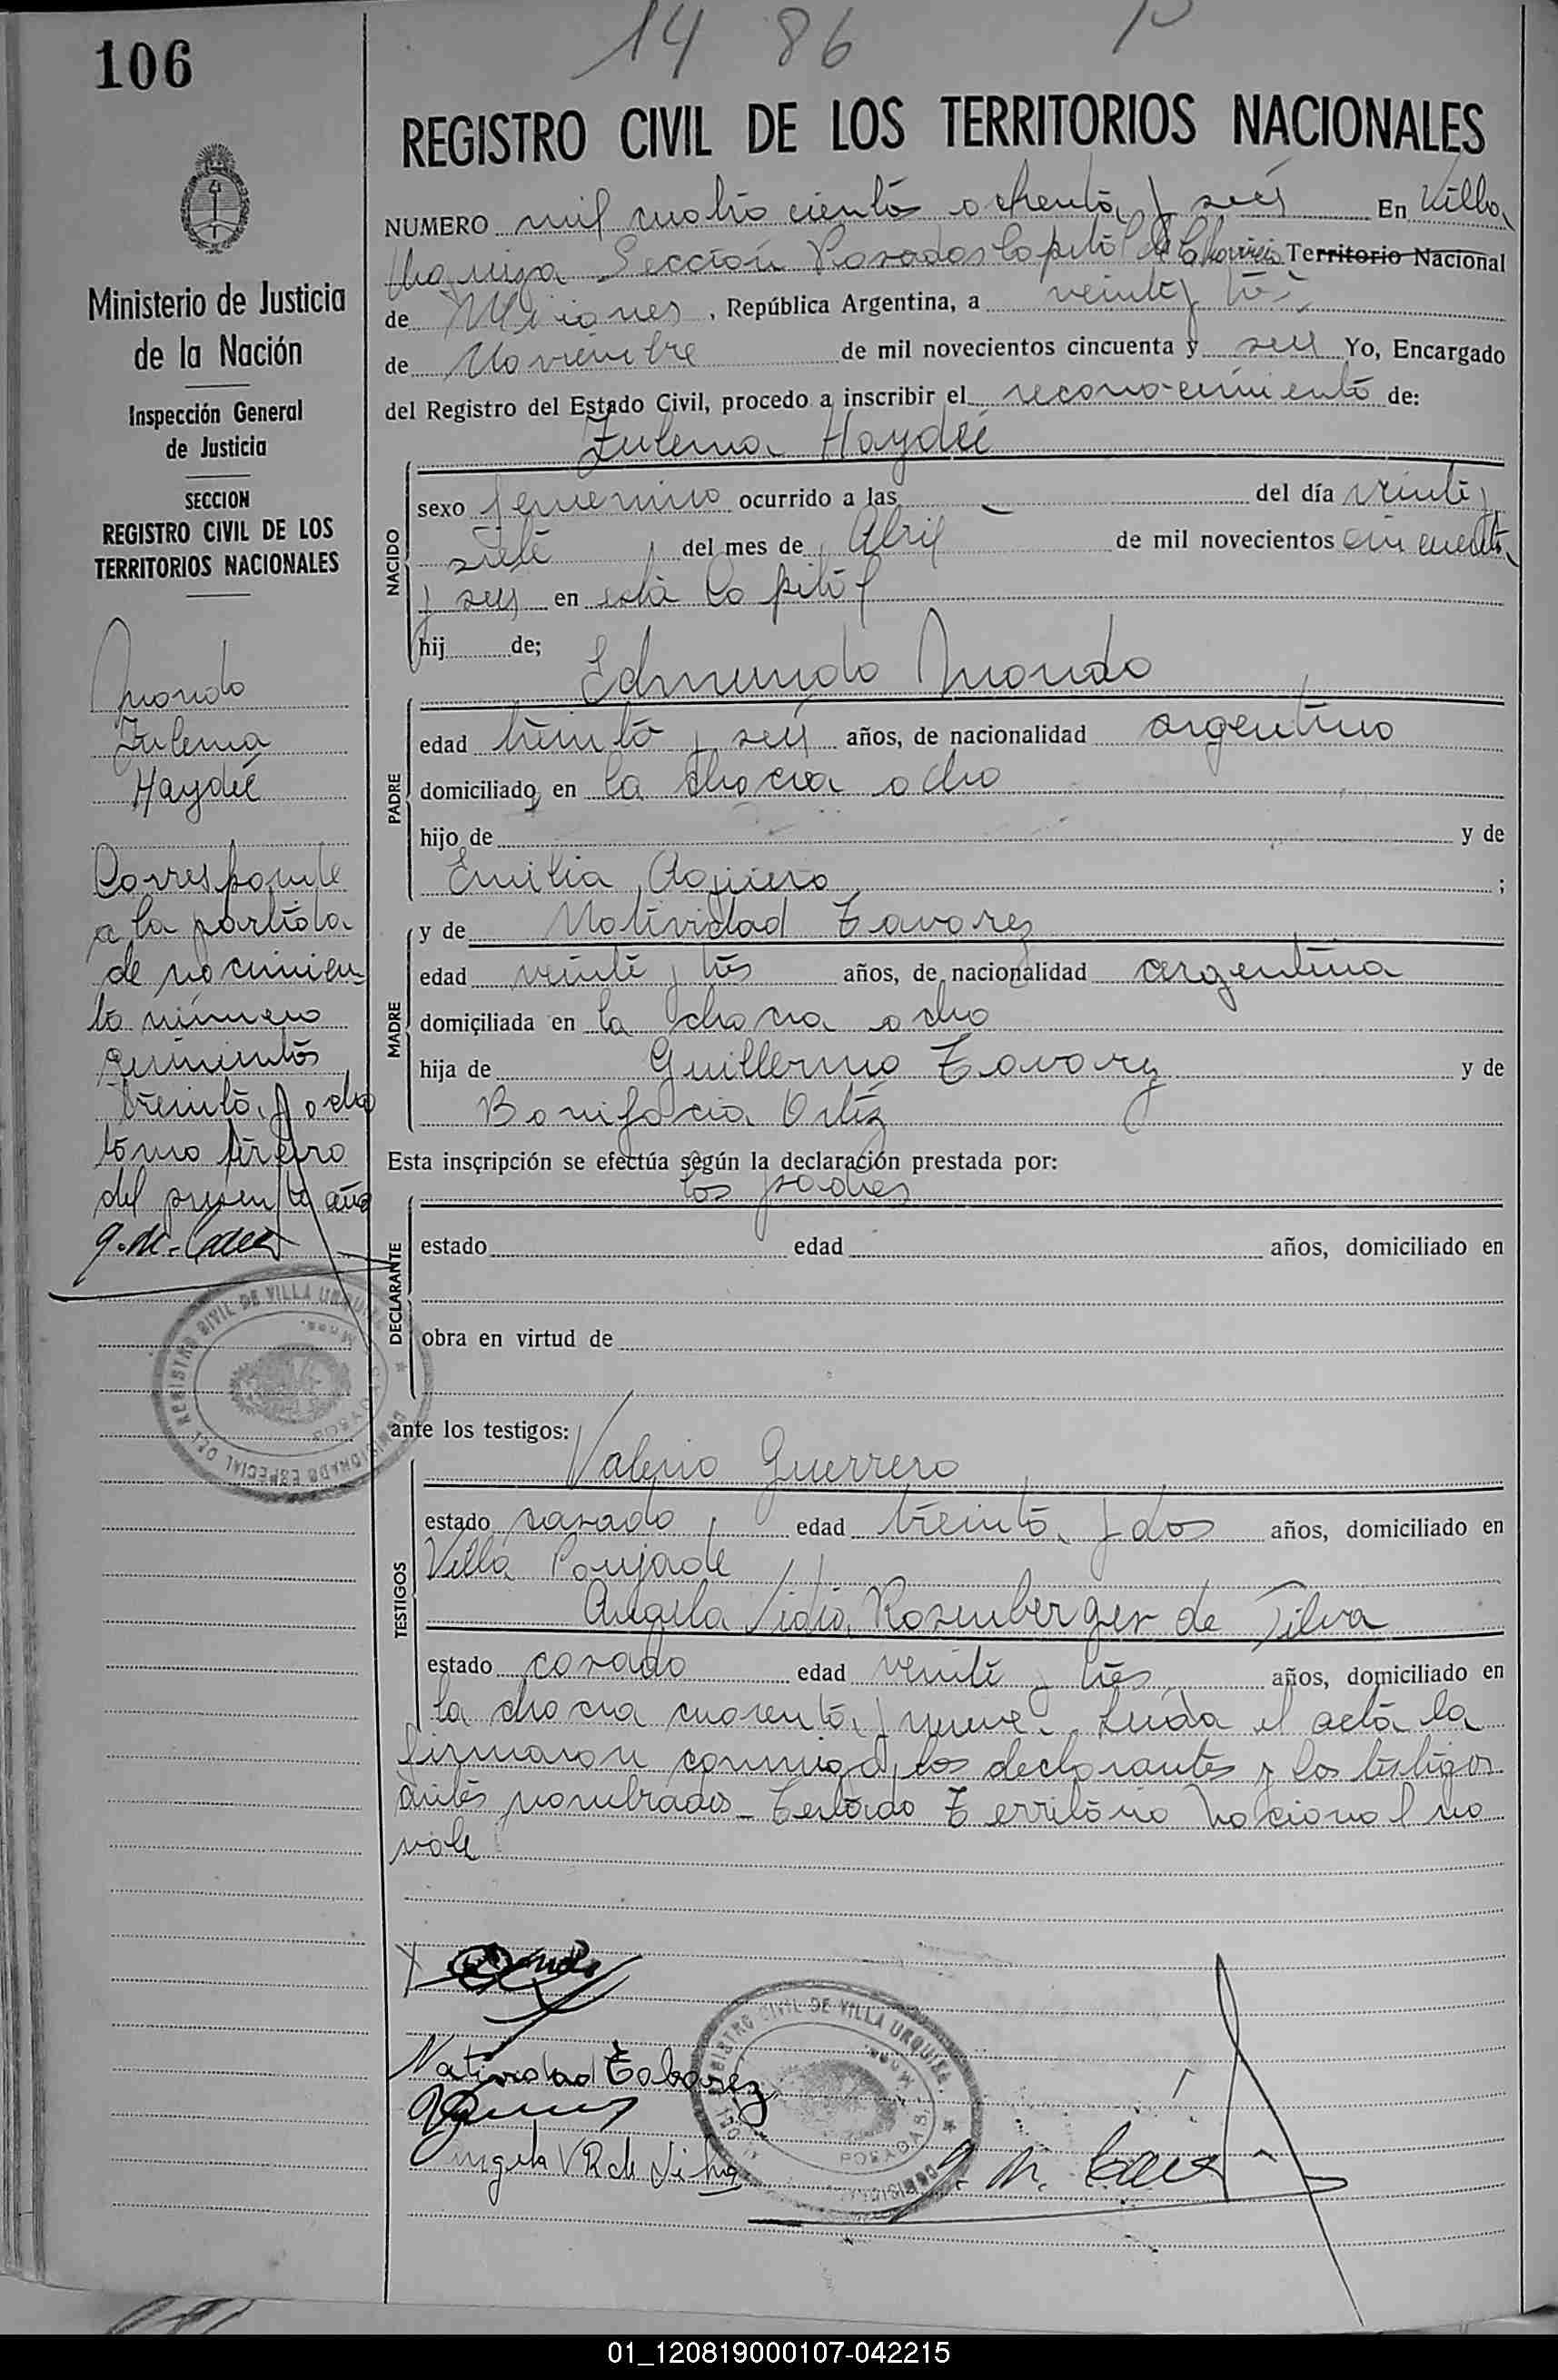 14 86
106
REGISTRO CIVIL DE LOS TERRITORIOS NACIONALES
Ministerio de Justicia
de la Nación
Inspección General
de Justicia
SECCION
REGISTRO CIVIL DE LOS
TERRITORIOS NACIONALES
Mondo
Zulema
Haydée
Corresponde
a la partida
de nacimien
to número
quinientos
treinta y ocho
tomo tercero
del presente año
NUMERO mil cuatro cientos ochenta y seis En Villa
Urquiza Sección Posadas Capital de la Provincia Territorio Nacional
de Misiones, República Argentina, a veinte y tres
de Noviembre de mil novecientos cincuenta y seis Yo, Encargado
del Registro del Estado Civil, procedo a inscribir el reconocimiento de:
Zulema Haydée
NACIDO
sexo femenino ocurrido a las — del día veinte y
siete del mes de Abril de mil novecientos cincuenta
y seis en esta Capital
hij de;
Edmundo Mondo
PADRE
edad treinta y seis años, de nacionalidad argentino
domiciliado en la chacra ocho
hijo de y de
Emilia Agüero ;
y de Natividad Tavarez
MADRE
edad veinte y tres años, de nacionalidad argentina
domiciliada en la chacra ocho
hija de Guillermo Tavarez y de
Bonifacia Ortiz
Esta inscripción se efectúa según la declaración prestada por:
los padres
DECLARANTE
estado edad años, domiciliado en
obra en virtud de
ante los testigos:
Valerio Guerrero
TESTIGOS
estado casado edad treinta y dos años, domiciliado en
Villa Poujade
Angela Rosenberger de Silva
estado casado edad veinte y tres años, domiciliado en
la chacra cuarenta y nueve. Leída el acta la
firmaron conmigo los declarantes y los testigos
antes nombrados - Testado Territorio Nacional no
vale
Natividad Tabarez
Angela V R de Silva
REGISTRO CIVIL DE VILLA URQUIZA
POSADAS
01_120819000107-042215